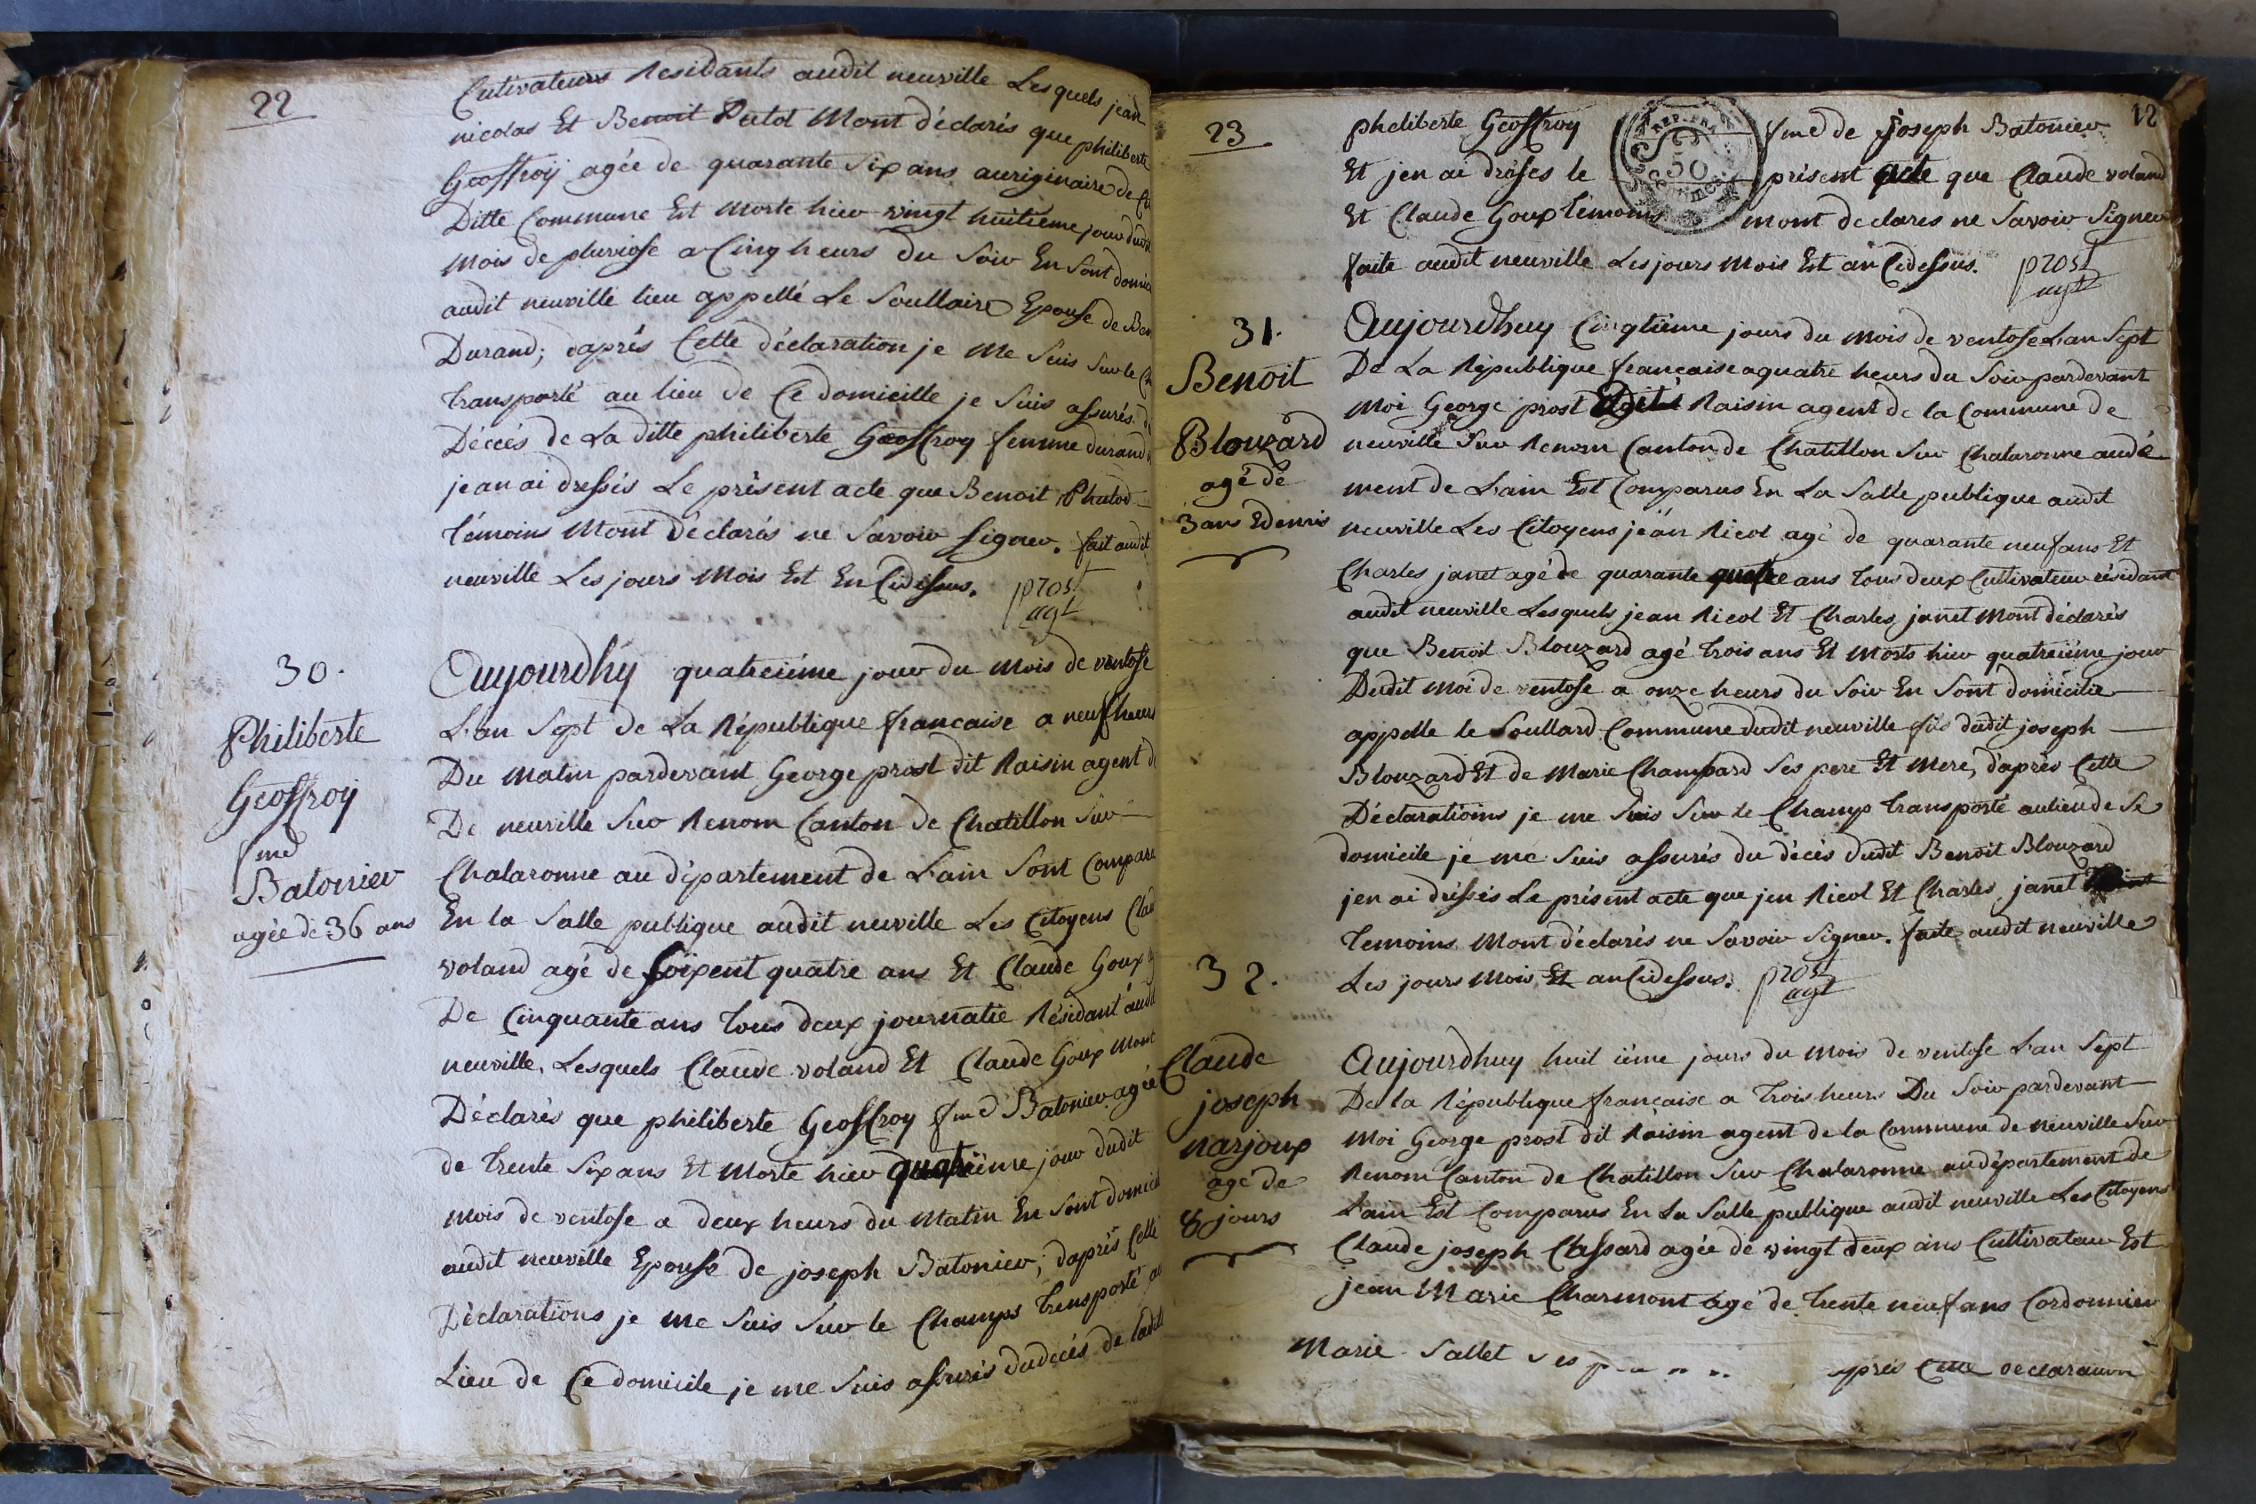 22
Cultivateurs Residants audit neuville Lesquels jean
nicolas Et Benoit Putod Mont déclarés que philiberte
Geoffroÿ agée de quarante Six ans auriginaire de
Ditte Commune Est Morte hier vingt huitiéme jour dudit
mois de pluviose a Cinq heurs du Soir En Sont domici
audit neuville lieu appellé Le Soullaire Epouse de Ben
Durand; daprés Cette déclaration je Me Suis Sur le Ch
transporté au lieu de Ce domicille je Suis assurés du
Décés de La ditte philiberte Geoffroy femme durand
jean ai dressés Le présent acte que Benoit Phutod
témoins Mont déclarés ne Savoir Signer. fait audit
neuville Les jours Mois Est En Cidessus. prost
agt
30.
Philiberte
Geoffroÿ
fme
Batonier
agée de 36 ans
Aujourdhÿ quatreiéme jour du Mois de ventose
L'an Sept de La République francaise a neuf heurs
Du Matin pardevant George prost dit Raisin agent d
De neuville Sur Renom Canton de Chatillon Sur
Chalaronne au département de L'ain Sont Compar
En la Salle publique audit neuville Les Citoyens Clau
voland agé de Soixent quatre ans Et Claude Goux
De Cinquante ans tous deux journatié Résidant audit
neuville, Lesquels Claude voland Et Claude Goux Mont
Déclarés que philiberte Geoffroy fme Batonier agée
de trente Six ans Et Morte hier quatriéme jour dudit
Mois de ventose a deux heurs du Matin En Sont domicil
audit neuville Epouse de joseph Batonier; daprés Cette
Déclarations je Me Suis Sur le Champs transporté au
Lieu de Ce domicile je me Suis assurés dudécés de Ladit
23
12
pheliberte Geoffroy fme de joseph Batonier
Et jen ai drésses le présent acte que Claude voland
Et Claude Goux témoins mont declares ne Savoir Signer
faite audit neuville Les jours Mois Est an Cidessus. prost
agt
REP. FRA
50
31.
Benoit
Blouzard
agé de
3 ans
Aujourdhuy Cinqtiéme jours du Mois de ventose L'an Sept
De La République francaise a quatre heurs du Soir pardevant
Moi George prost Raisin agent de la Commune de
neuville Sur Renom Canton de Chatillon Sur Chalaronne audé
ment de L'ain Est Comparus En La Salle publique audit
neuville Les Citoyens jean Nicol agé de quarante neuf ans Et
Charles janet agé de quarante quatre ans tous deux Cultivateur résidant
audit neuville Lesquels jean Nicol Et Charles janet Mont déclarés
que Benoit Blouzard agé trois ans Et Morts hier quatreiéme jour
Dudit Moi de ventose a onze heurs du Soir En Sont domicile
appelle le Soullard Commune dudit neuville fils dudit joseph
Blouzard Et de Marie Champard Ses pere Et Mere, daprés Cette
Déclarations je me Suis Sur le Champ transporté au lieu de Se
domicile je me Suis assurés du décés dudit Benoit Blouzard
jen ai dréssés Le présent acte que jen Nicol Et Charles janet
temoins Mont déclarés ne Savoir Signer. faite audit neuville
Les jours Mois Et an Cidessus. prost
agt
32.
Claude
joseph
narjoux
agé de
8 jours
Aujourdhuy huit iéme jours du Mois de ventose L'an Sept
De la République francaise a trois heurs Du Soir pardevant
Moi George prost dit Raisin agent de la Commune de Neuville Sur
Renom Canton de Chatillon Sur Chalaronne audépartement de
L'ain Est Comparus En La Salle publique audit neuville Les Citoyens
Claude joseph Classard agée de vingt deux ans Cultivateur Est
jean Marie Charmont agé de trente neuf ans Cordonnier
Marie Sallet Ses aprés Cette declaration